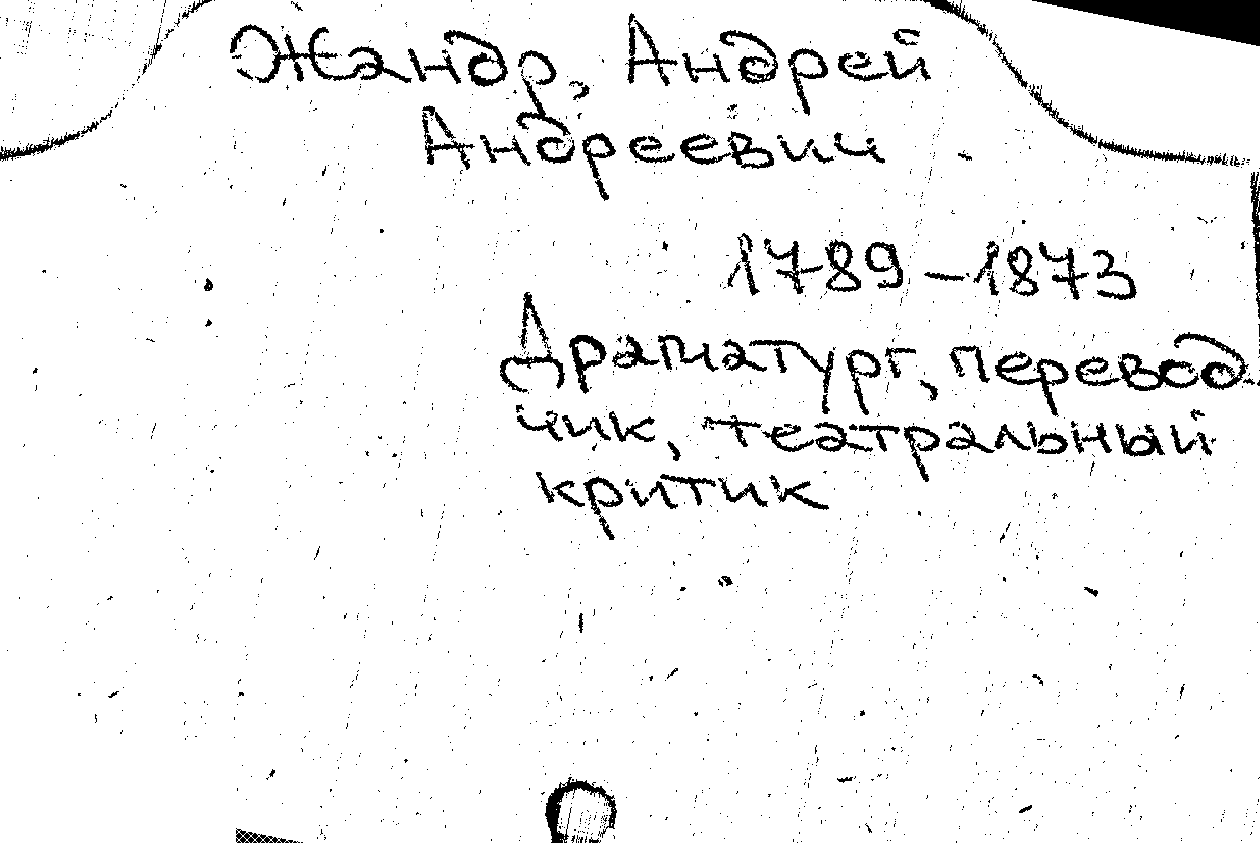 Жандр, Андрей
Андреевич
1789-1873
Драматург, перевод
чик, театральный
критик